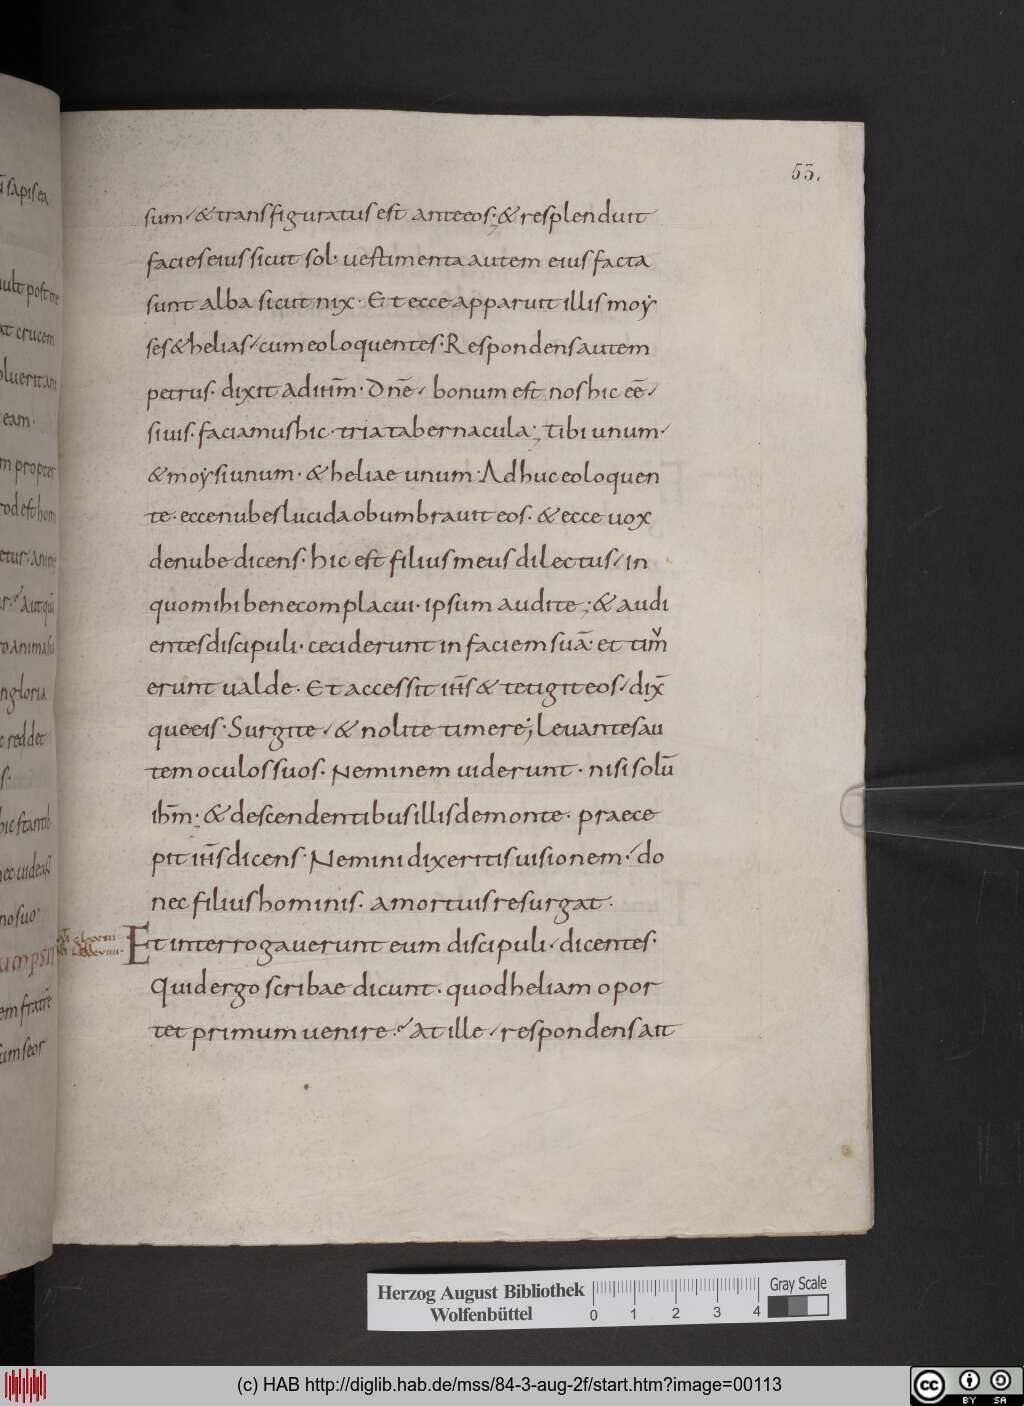 53.
sum / & transfiguratus est ante eos; & resplenduit
facies eius sicut sol. uestimenta autem eius facta
sunt alba sicut nix. Et ecce apparuit illis moẏ
ses & helias / cum eo loquentes. Respondens autem
petrus. dixit ad ih̄m. Dn̄e / bonum est nos hic eē /
si uis. faciamus hic. tria tabernacula; tibi unum. /
& moẏsi unum. & heliae unum. Adhuc eo loquen
te. ecce nubes lucida obumbrauit eos. & ecce uox
de nube dicens. hic est filius meus dilectus / in
quo mihi bene complacui. ipsum audite; & audi
entes discipuli. ceciderunt in faciem suā. et timv
erunt ualde. Et accessit ih̄s & tetigit eos / dix̄
que eis. Surgite / & nolite timere; Leuantes au
tem oculos suos. Neminem uiderunt. nisi solū
ih̄m; & descendentibus illis de monte. praece
pit ih̄s dicens. Nemini dixeritis uisionem. / do
nec filius hominis. a mortuis resurgat.
Et interrogauerunt eum discipuli / dicentes.
Quid ergo scribae dicunt. quod heliam opor
tet primum uenire. At ille / respondens ait
sapis ea
uult post me
crucem
eam.
m propter
etur. anime
gloria
reddet
hic stantib
nosuo.
em fratrē
Herzog August Bibliothek
Wolfenbüttel
0 1 2 3 4
Gray Scale
(c) HAB http://diglib.hab.de/mss/84-3-aug-2f/start.htm?image=00113
cc BY SA